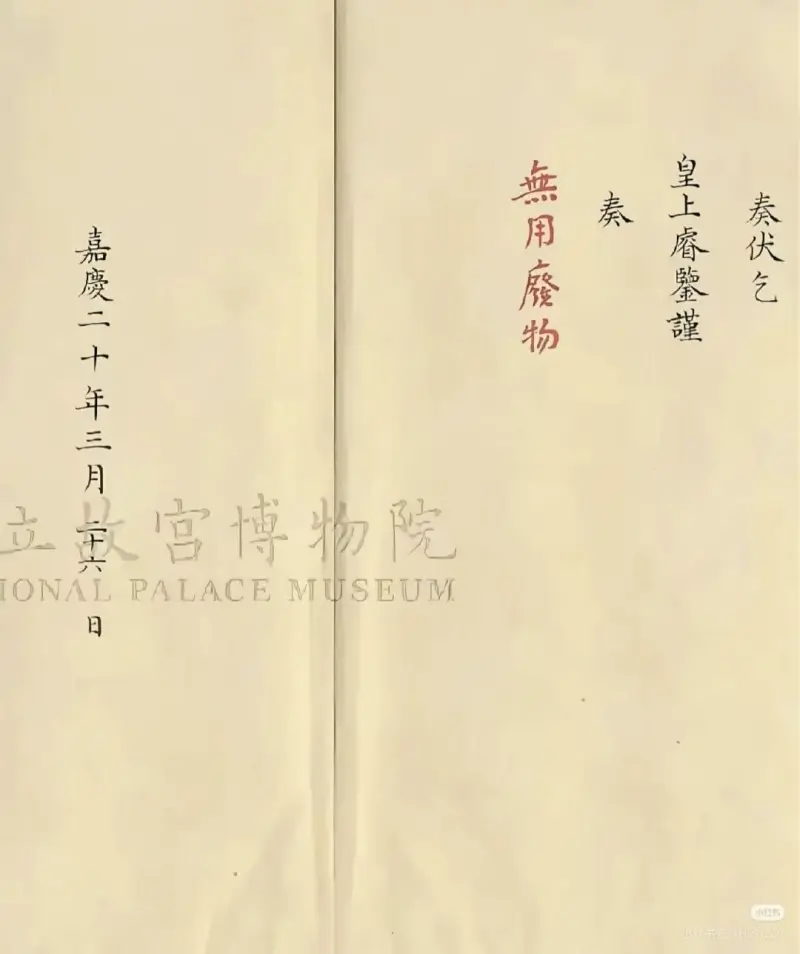 奏伏乞
皇上睿鑒謹
奏
無用廢物
嘉慶二十年三月二十六日
立故宮博物院
IONAL PALACE MUSEUM
小红书